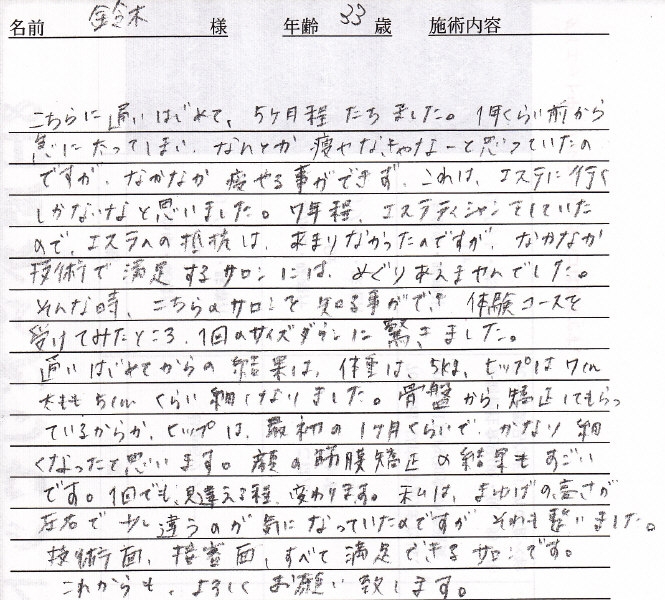 名前 鈴木 様 年齢 33 歳 施術内容
こちらに通いはじめて、5ヶ月程たちました。1年くらい前から
急に太ってしまい、なんとか痩せなきゃなーと思っていたの
ですが、なかなか痩せる事ができず、これは、エステに行く
しかないなと思いました。7年程、エステティシャンをしていた
ので、エステへの抵抗は、あまりなかったのですが、なかなか
技術で満足するサロンには、めぐりあえませんでした。
そんな時、こちらのサロンを知る事ができ 体験コースを
受けてみたところ、1回のサイズダウンに驚きました。
通いはじめてからの結果は、体重は、5kg、ヒップは7cm
太もも5cmくらい細くなりました。骨盤から、矯正してもらっ
ているからか、ヒップは、最初の1ヶ月くらいで、かなり細
くなったと思います。顔の筋膜矯正の結果もすごい
です。1回でも、見違える程、変わります。私は、まゆげの高さが
左右で少し違うのが気になっていたのですが それも整いました。
技術面、接客面、すべて満足できるサロンです。
これからも、よろしくお願い致します。